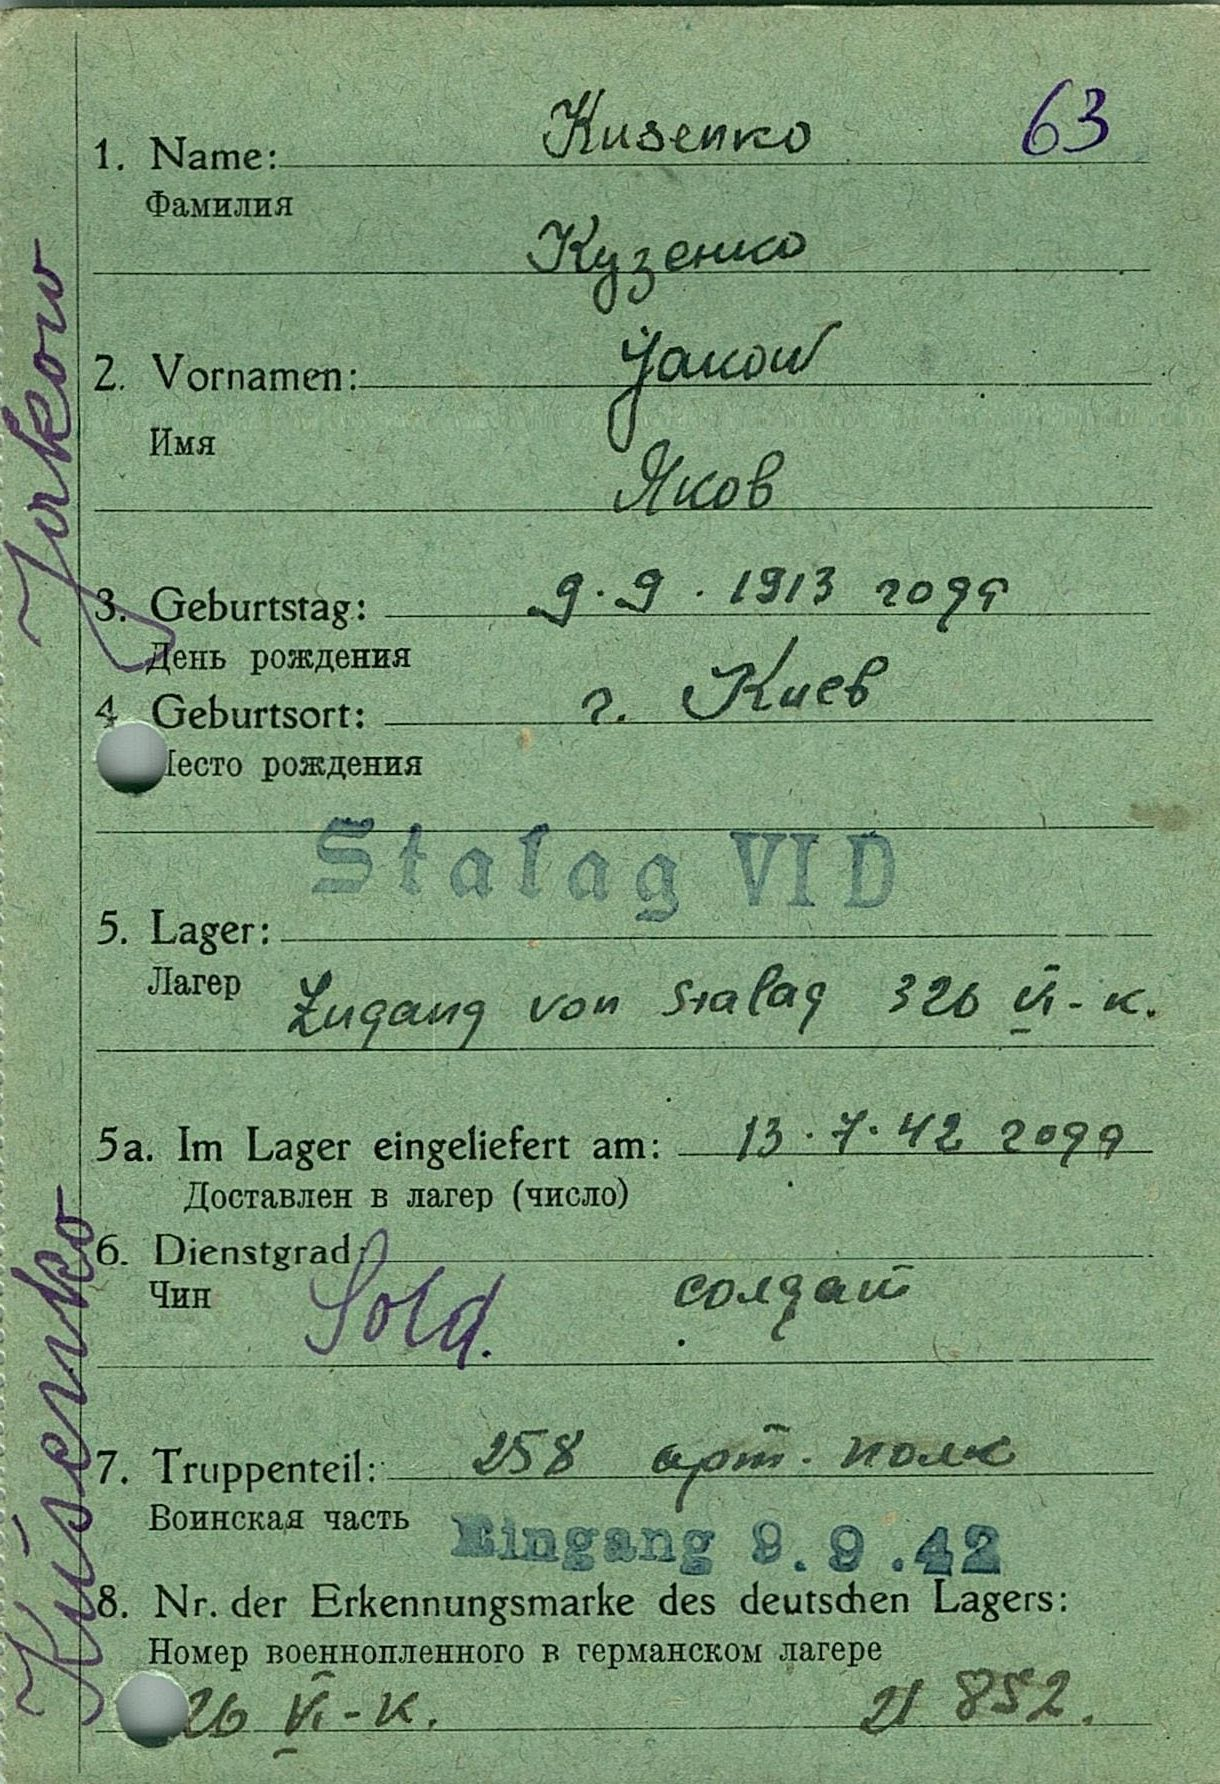 63
1. Name: Kusenko
Фамилия
Кузенко
2. Vornamen: Jakow
Имя
Яков
3. Geburtstag: 9. 9. 1913 года
День рождения
4. Geburtsort: г. Киев
Место рождения
Stalag VI D
5. Lager:
Лагер Zugang von Stalag 326 VI-K.
5a. Im Lager eingeliefert am: 13. 7. 42 года
Доставлен в лагер (число)
6. Dienstgrad:
Чин Sold. солдат
7. Truppenteil: 258 арт. полк
Воинская часть
Eingang 9. 9. 42
8. Nr. der Erkennungsmarke des deutschen Lagers:
Номер военнопленного в германском лагере
26 VI-K. 21 852.
Kusenko
Jakow